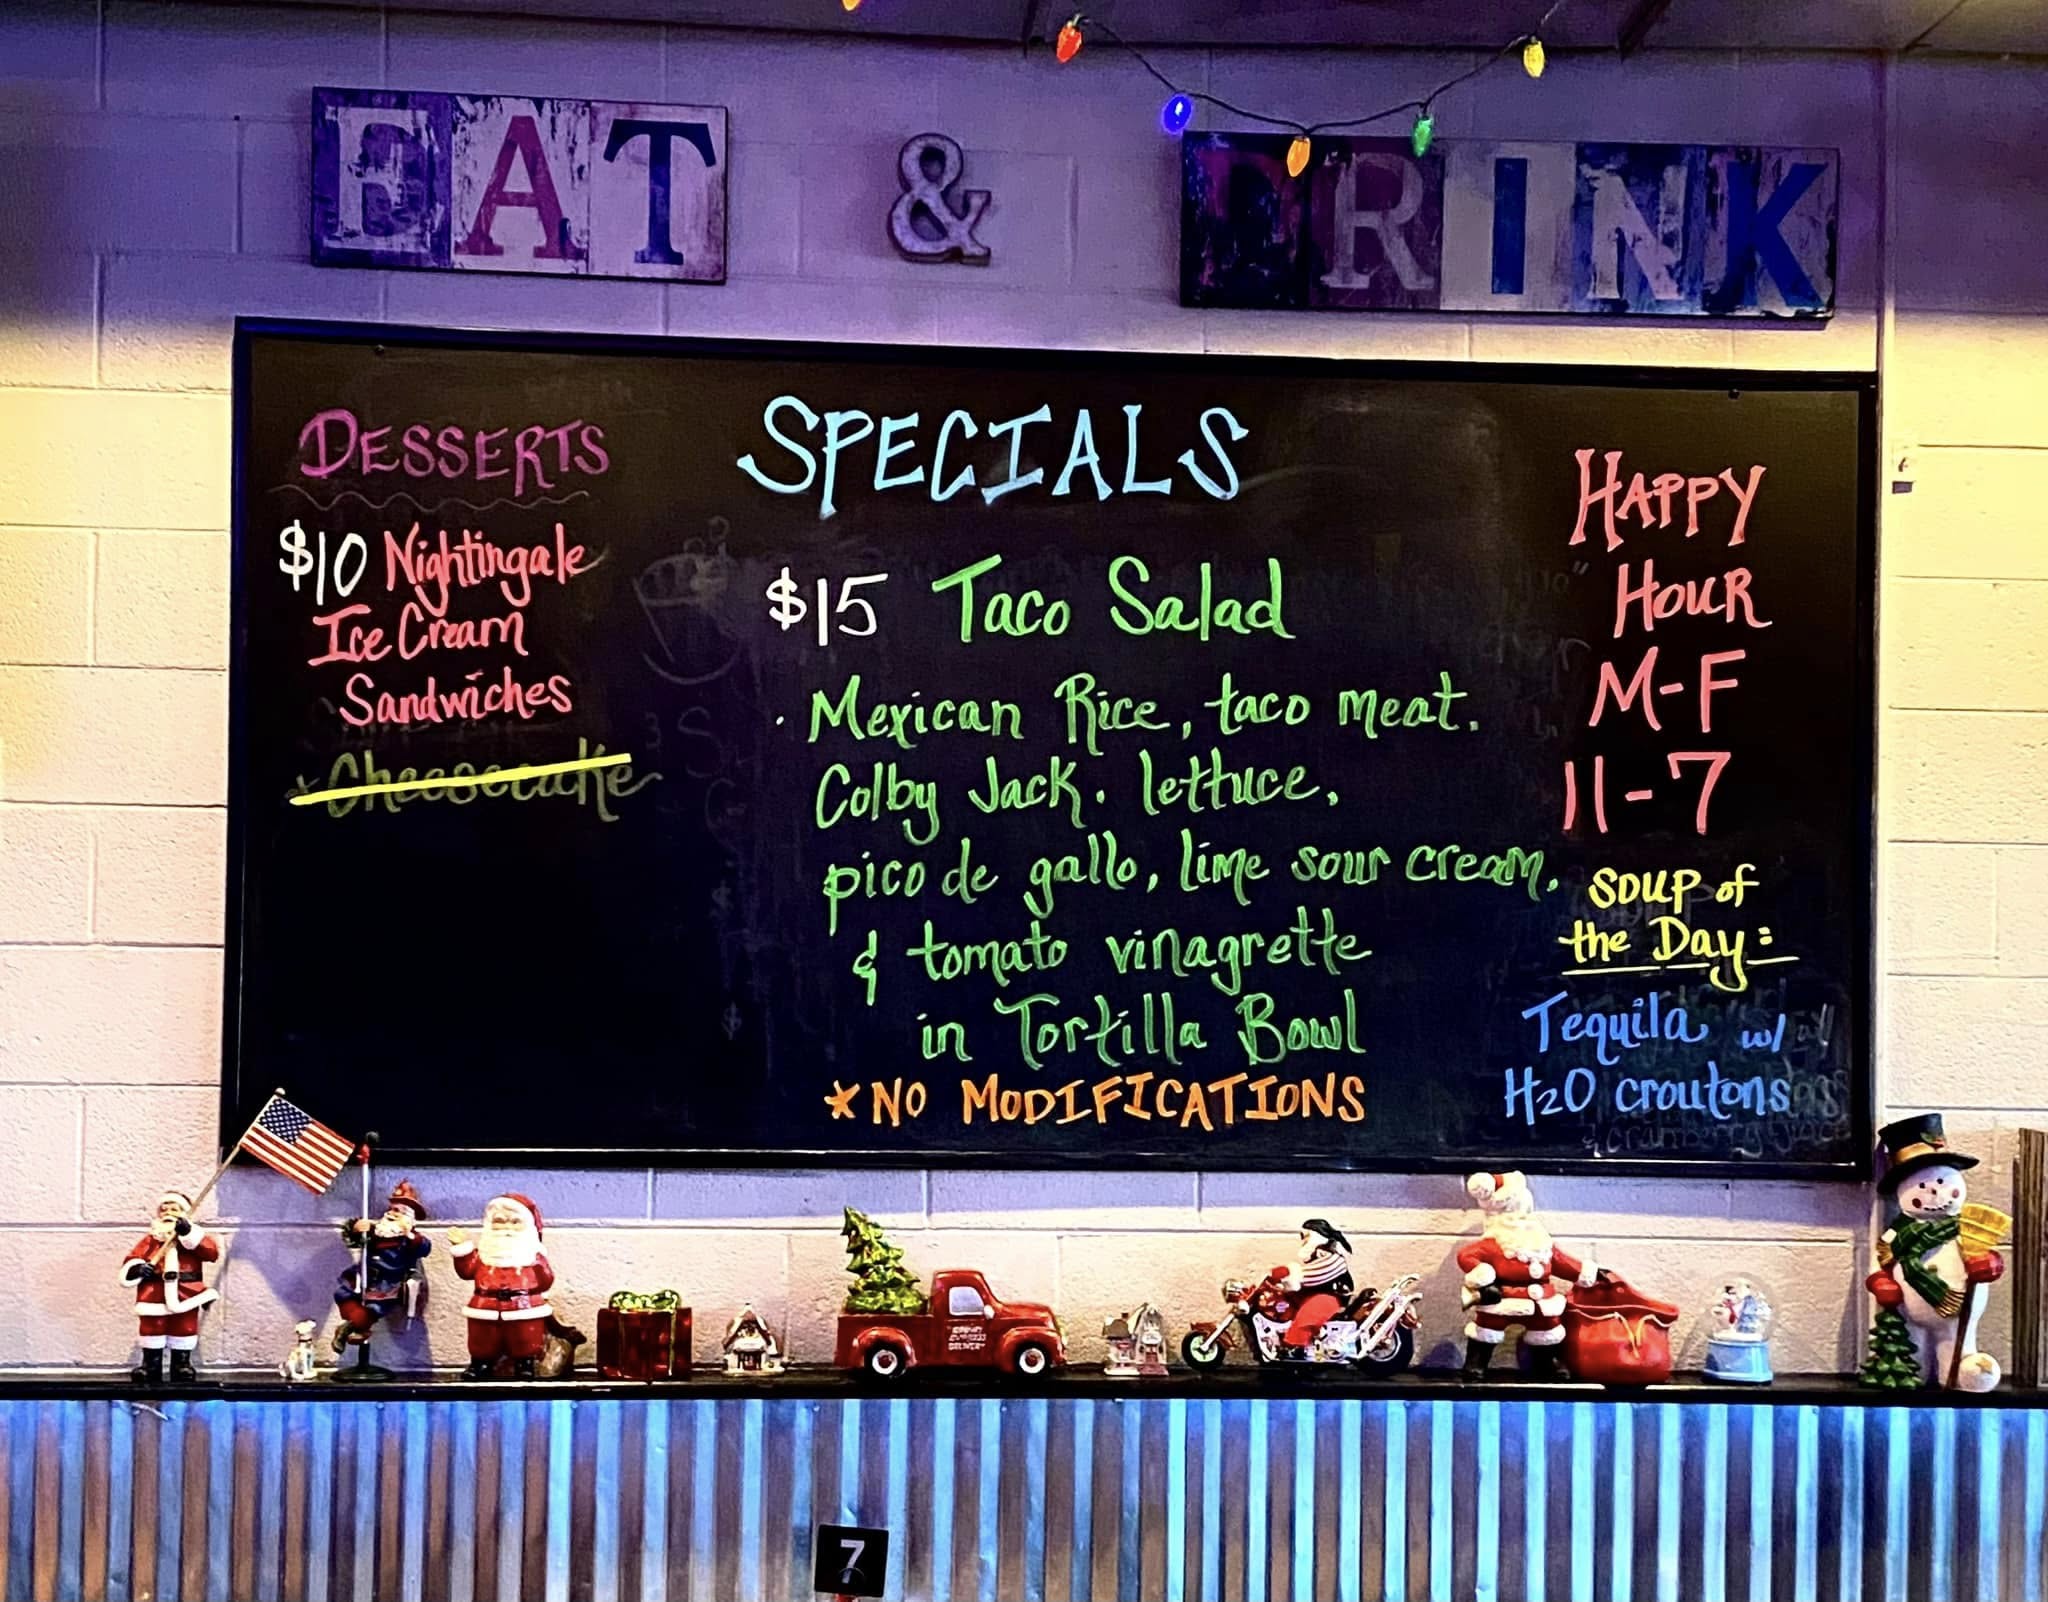 EAT & DRINK
DESSERTS
$10 Nightingale
Ice Cream
Sandwiches
Cheesecake
SPECIALS
$15 Taco Salad
· Mexican Rice, taco meat,
Colby Jack, lettuce,
pico de gallo, lime sour cream,
& tomato vinagrette
in Tortilla Bowl
*NO MODIFICATIONS
HAPPY
HOUR
M-F
11-7
SOUP of
the Day:
Tequila w/
H2O croutons
& cranberry juice
7